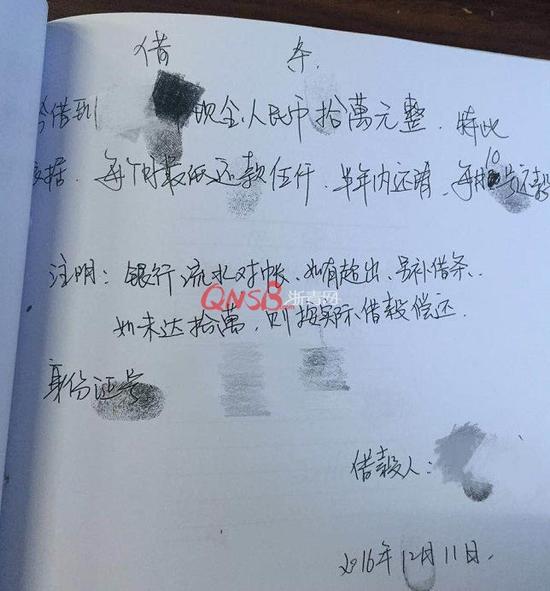 借 条.
今借到 现金人民币拾萬元整. 特此
立据. 每个月最低还款伍仟. 半年内还清、每月10号还款
注明: 银行流水对帐、如有超出、另补借条、
QNSB 浙青网
如未达拾萬, 则按实际借款偿还.
身份证号
借款人:
2016年12月11日.